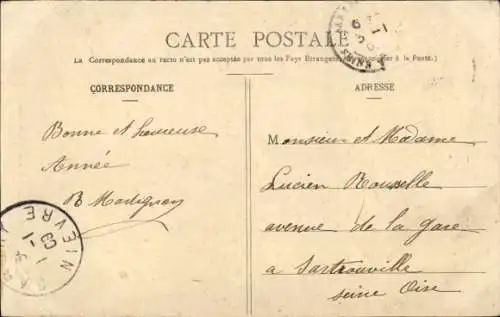 CARTE POSTALE
La Correspondance au recto n'est pas acceptée par tous les Pays Etrangers à la Poste.)
CORRESPONDANCE
ADRESSE
Bonne et heureuse
Année
Monsieur et Madame
Lucien Rousselle
avenue de la gare
a Sartrouville
Seine Oise